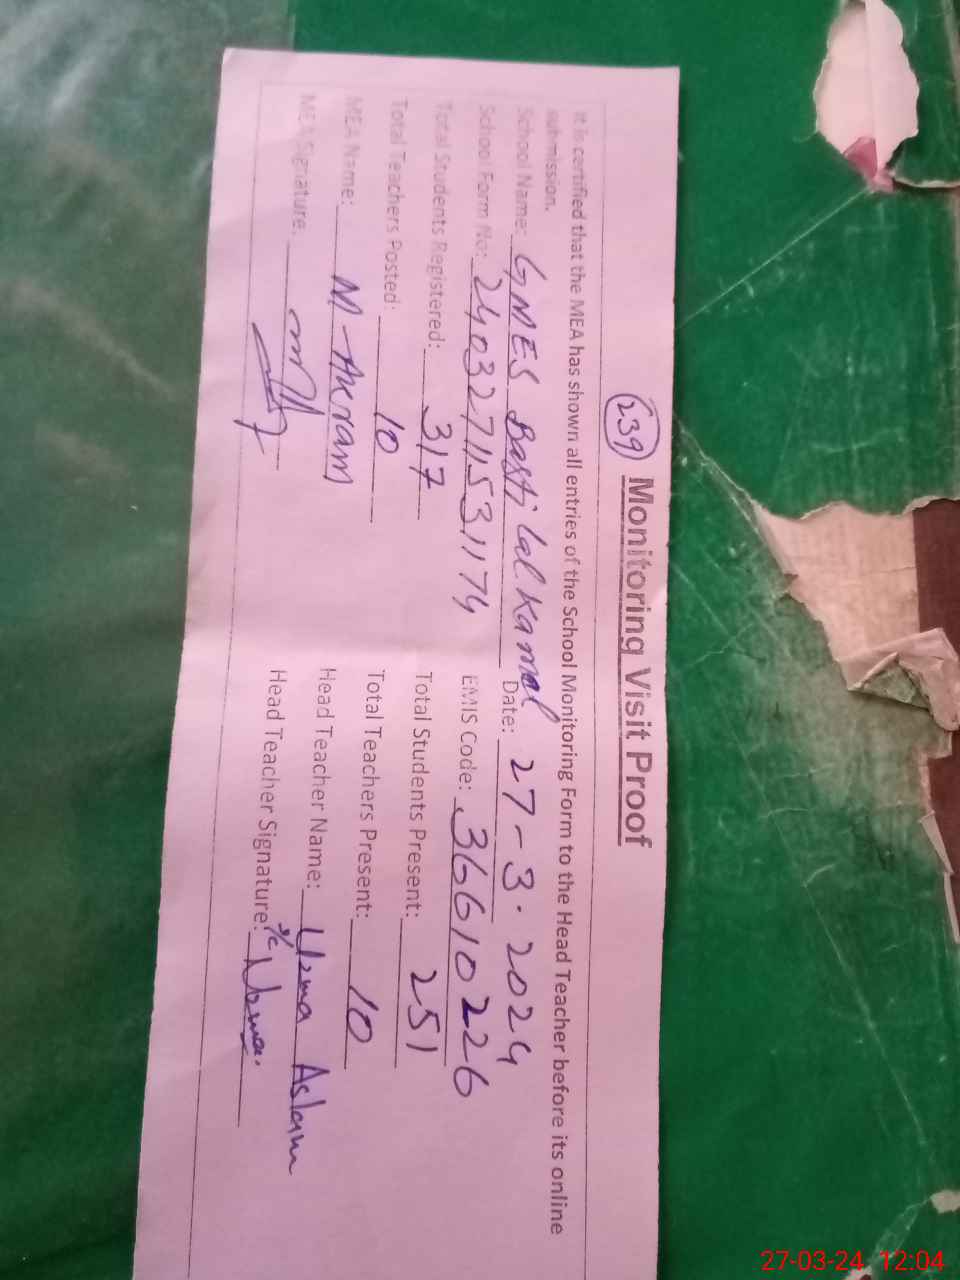 239 Monitoring Visit Proof
It is certified that the MEA has shown all entries of the School Monitoring Form to the Head Teacher before its online
submission.
School Name: GMES Basti Lal Kamal Date: 27-3-2024
School Form No: 240327115311174 EMIS Code: 36610226
Total Students Registered: 317 Total Students Present: 251
Total Teachers Posted: 10 Total Teachers Present: 10
MEA Name: M-Akram Head Teacher Name: Uzma Aslam
MEA Signature: Head Teacher Signature:
27-03-24 12:04